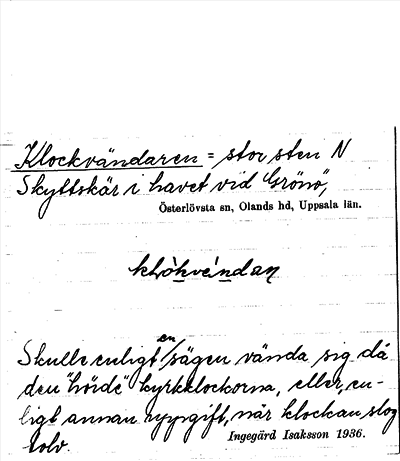 Klockvändaren = stor sten N
Skyttskär i havet vid Grönö,
Österlövsta sn, Olands hd, Uppsala län.
klòkvéndan
Skulle enligt en sägen vända sig då
den "hörde" kyrkklockorna, eller, en-
ligt annan uppgift, när klockan slog
tolv.
Ingegärd Isaksson 1936.